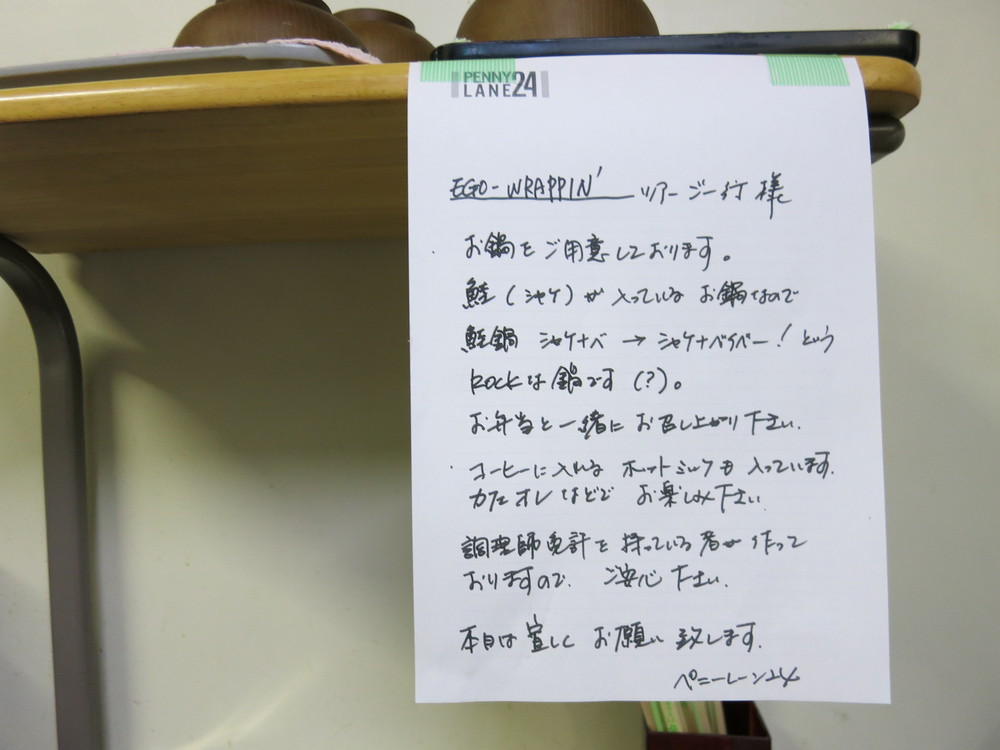 PENNY
LANE24
EGO-WRAPPIN' ツアーご一行様
・お鍋をご用意しております。
鮭(シャケ)が入っている お鍋なので
鮭鍋 シャケナベ → シャケナベイベー!という
ROCKな鍋です(?)。
お弁当と一緒に お召し上がり下さい。
・コーヒーに入れる ホットミルクも 入っています。
カフェオレなどで お楽しみ下さい。
調理師免許を 持っている者が 作って
おりますので、ご安心下さい。
本日は宜しく お願い致します。
ペニーレーン24